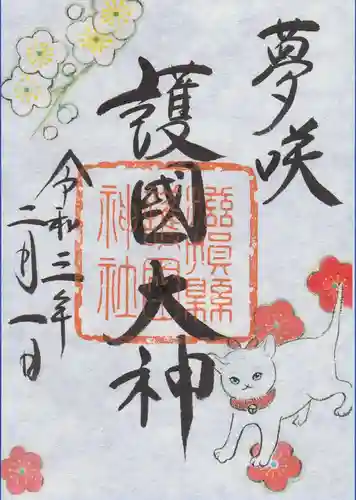 夢咲
護國大神
令和三年
二月一日
滋賀縣
護國
神社